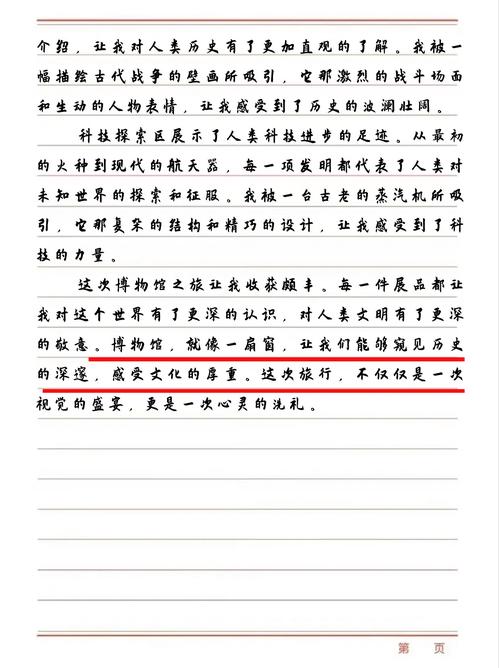 介绍，让我对人类历史有了更加直观的了解。我被一
幅描绘古代战争的壁画所吸引，它那激烈的战斗场面
和生动的人物表情，让我感受到了历史的波澜壮阔。
科技探索区展示了人类科技进步的足迹。从最初
的火种到现代的航天器，每一项发明都代表了人类对
未知世界的探索和征服。我被一台古老的蒸汽机所吸
引，它那复杂的结构和精巧的设计，让我感受到了科
技的力量。
这次博物馆之旅让我收获颇丰。每一件展品都让
我对这个世界有了更深的认识，对人类文明有了更深
的敬意。博物馆，就像一扇窗，让我们能够窥见历史
的深邃，感受文化的厚重。这次旅行，不仅仅是一次
视觉的盛宴，更是一次心灵的洗礼。
第 页